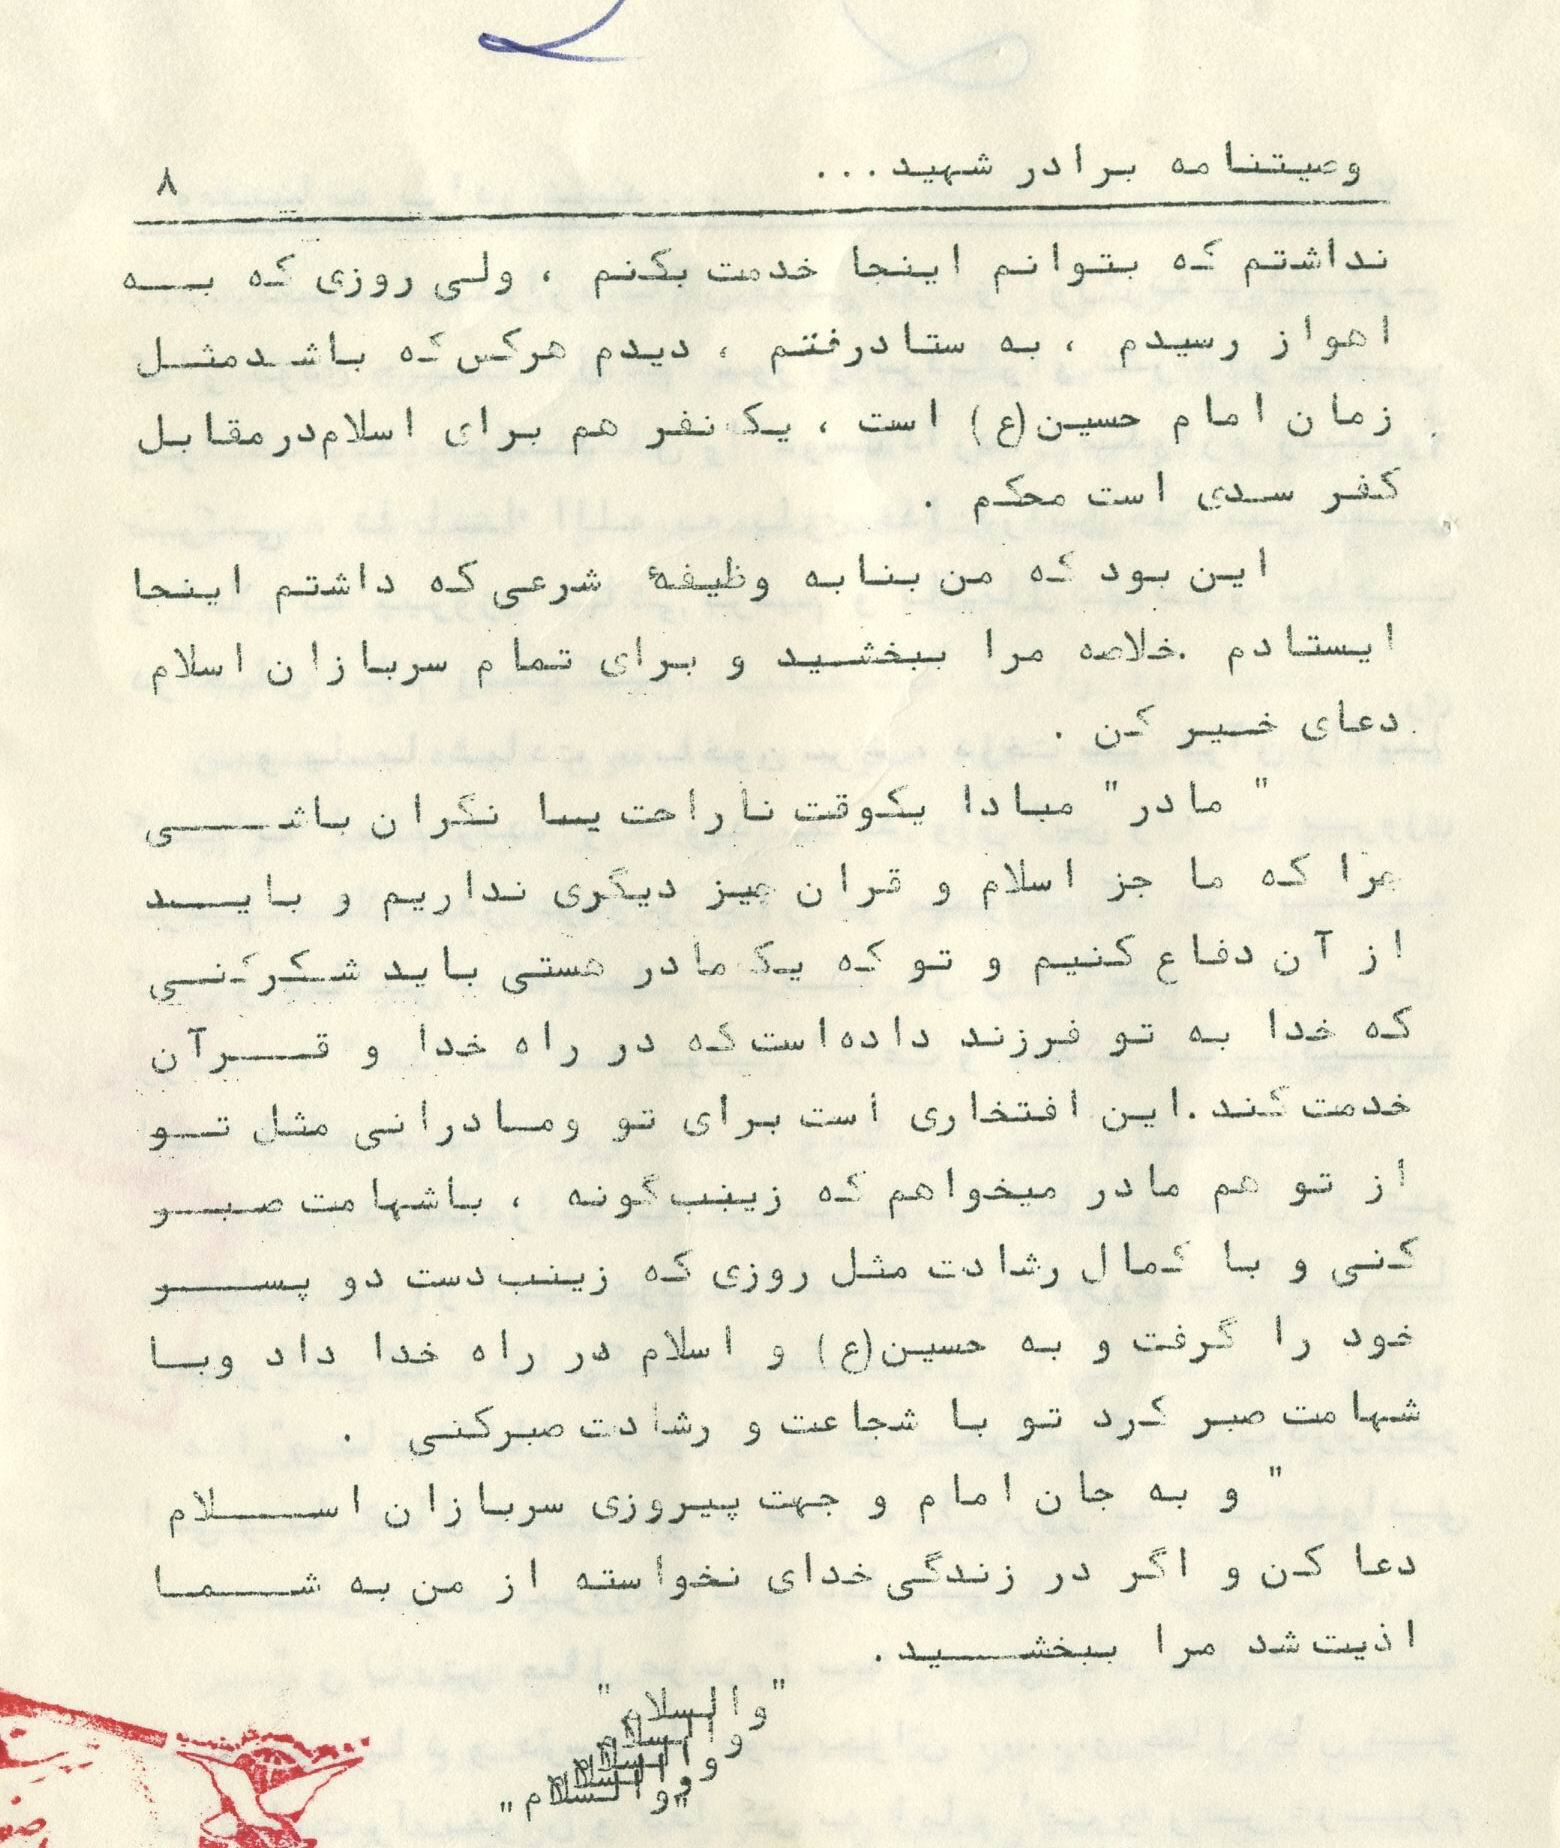 وصیتنامه برادر شهید...
۸
نداشتم که بتوانم اینجا خدمت بکنم ، ولی روزی که به
اهواز رسیدم ، به ستادرفتم ، دیدم هرکس که باشدمثل
زمان امام حسین(ع) است ، یک نفر هم برای اسلام درمقابل
کفر سدی است محکم .
این بود که من بنابه وظیفهٔ شرعی که داشتم اینجا
ایستادم .خلاصه مرا ببخشید و برای تمام سربازان اسلام
دعای خیر کن .
" مادر" مبادا یکوقت ناراحت یا نگران باشی
چرا که ما جز اسلام و قران چیز دیگری نداریم و باید
از آن دفاع کنیم و تو که یک مادر هستی باید شکرکنی
که خدا به تو فرزند داده است که در راه خدا و قرآن
خدمت کند .این افتخاری است برای تو ومادرانی مثل تو
از تو هم مادر میخواهم که زینب گونه ، باشهامت صبر
کنی و با کمال رشادت مثل روزی که زینب دست دو پسر
خود را گرفت و به حسین(ع) و اسلام در راه خدا داد وبا
شهامت صبر کرد تو با شجاعت و رشادت صبرکنی .
" و به جان امام و جهت پیروزی سربازان اسلام
دعا کن و اگر در زندگی خدای نخواسته از من به شما
اذیت شد مرا ببخشید.
"والسلام"
والسلام
والسلام
والسلام
"والسلام"